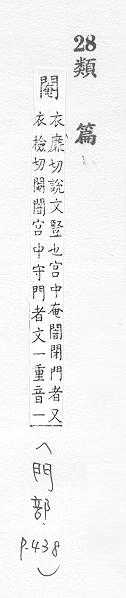 28
類篇
閹
衣廉切說文豎也宮中奄閽閉門者又
衣檢切閹閽宮中守門者文一重音一
(門部,
P.438)